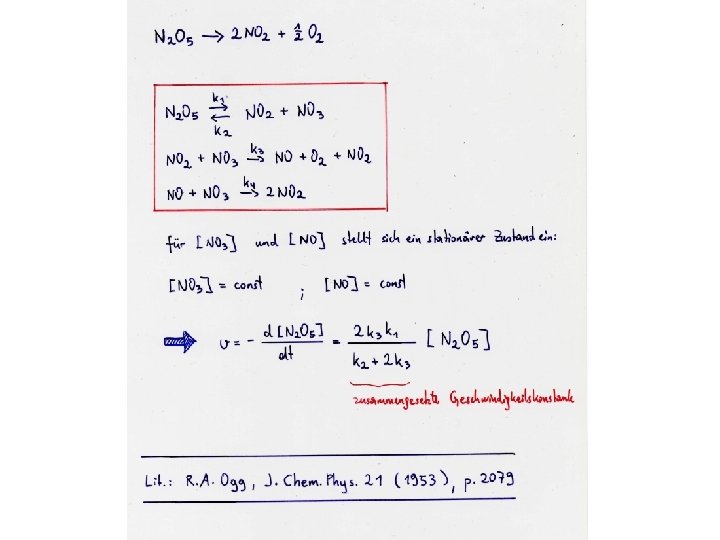 N₂O₅ → 2 NO₂ + ½ O₂
k₁
N₂O₅ ⇄ NO₂ + NO₃
k₂
NO₂ + NO₃ →(k₃) NO + O₂ + NO₂
NO + NO₃ →(k₄) 2 NO₂
für [NO₃] und [NO] stellt sich ein stationärer Zustand ein:
[NO₃] = const ; [NO] = const
⇒ v = - d[N₂O₅]/dt = 2k₃k₁/(k₂ + 2k₃) [N₂O₅]
zusammengesetzte Geschwindigkeitskonstante
Lit.: R.A. Ogg, J. Chem. Phys. 21 (1953), p. 2079